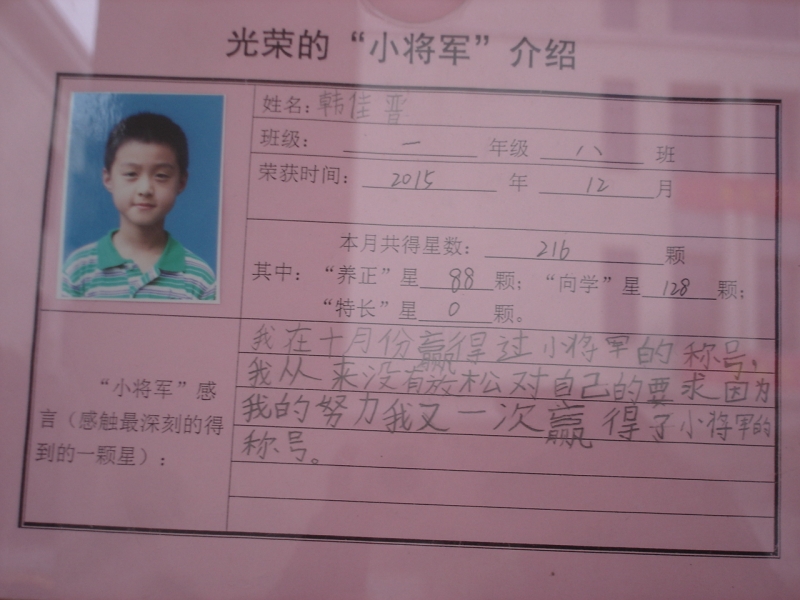 光荣的“小将军”介绍
姓名：韩佳晋
班级： 一 年级 八 班
荣获时间： 2015 年 12 月
本月共得星数： 216 颗
其中：“养正”星 88 颗；“向学”星 128 颗；
“特长”星 0 颗。
“小将军”感
言（感触最深刻的得
到的一颗星）：
我在十月份赢得过小将军的称号，
我从来没有放松对自己的要求因为
我的努力我又一次赢得了小将军的
称号。